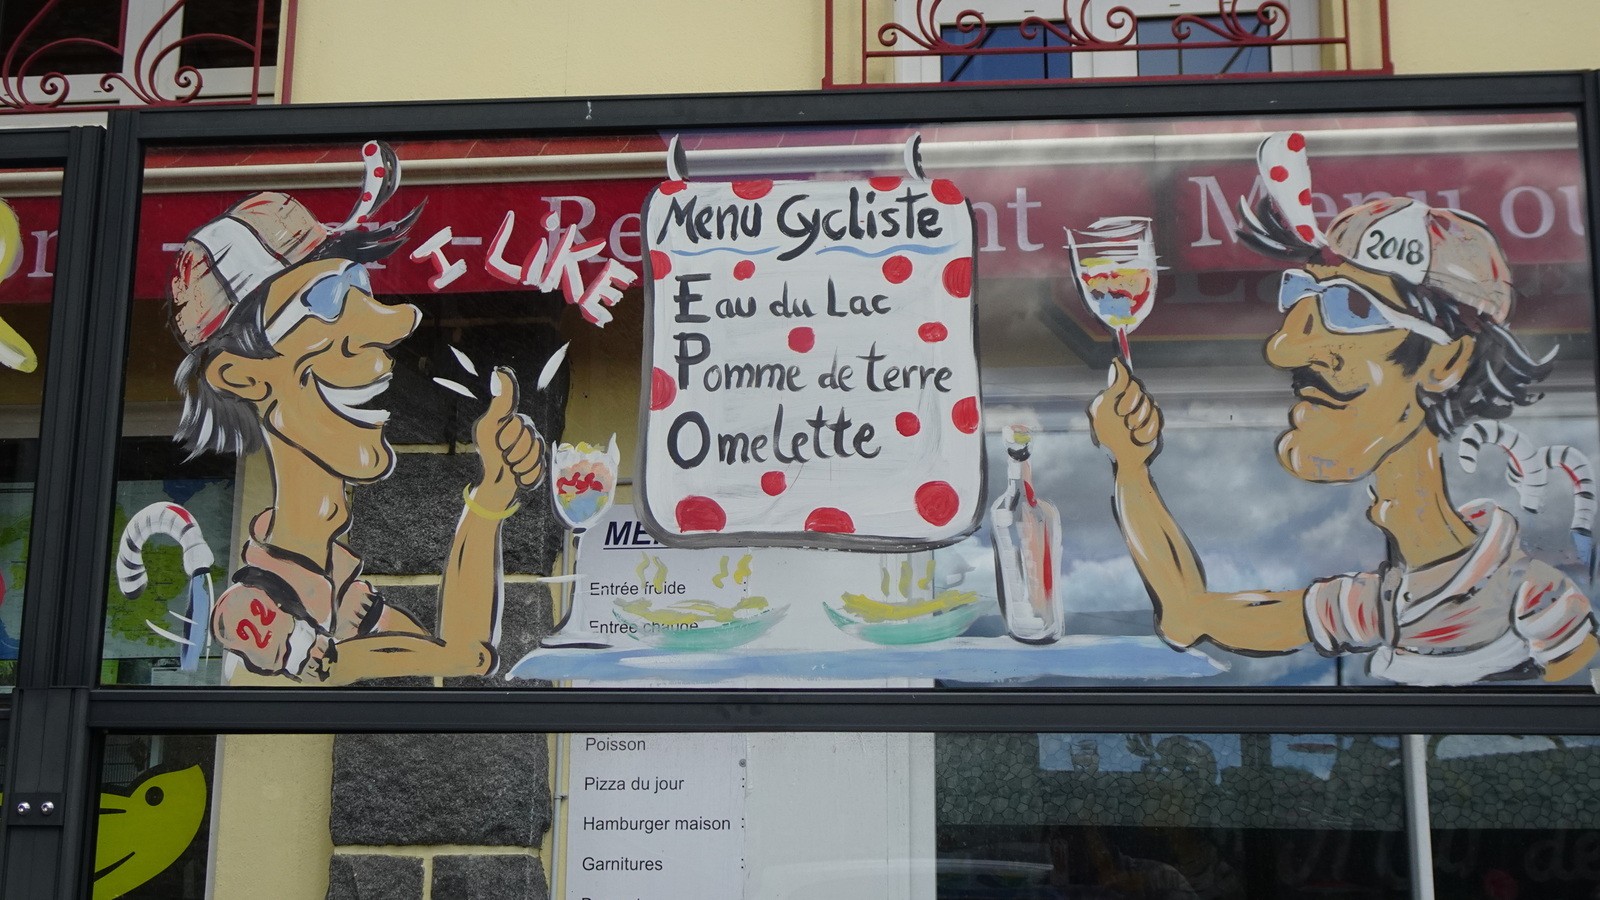 I LiKE
Menu Cycliste
Eau du Lac
Pomme de terre
Omelette
2018
22
Menu ou
Entrée froide :
Entrée chaude
Poisson
Pizza du jour :
Hamburger maison :
Garnitures :